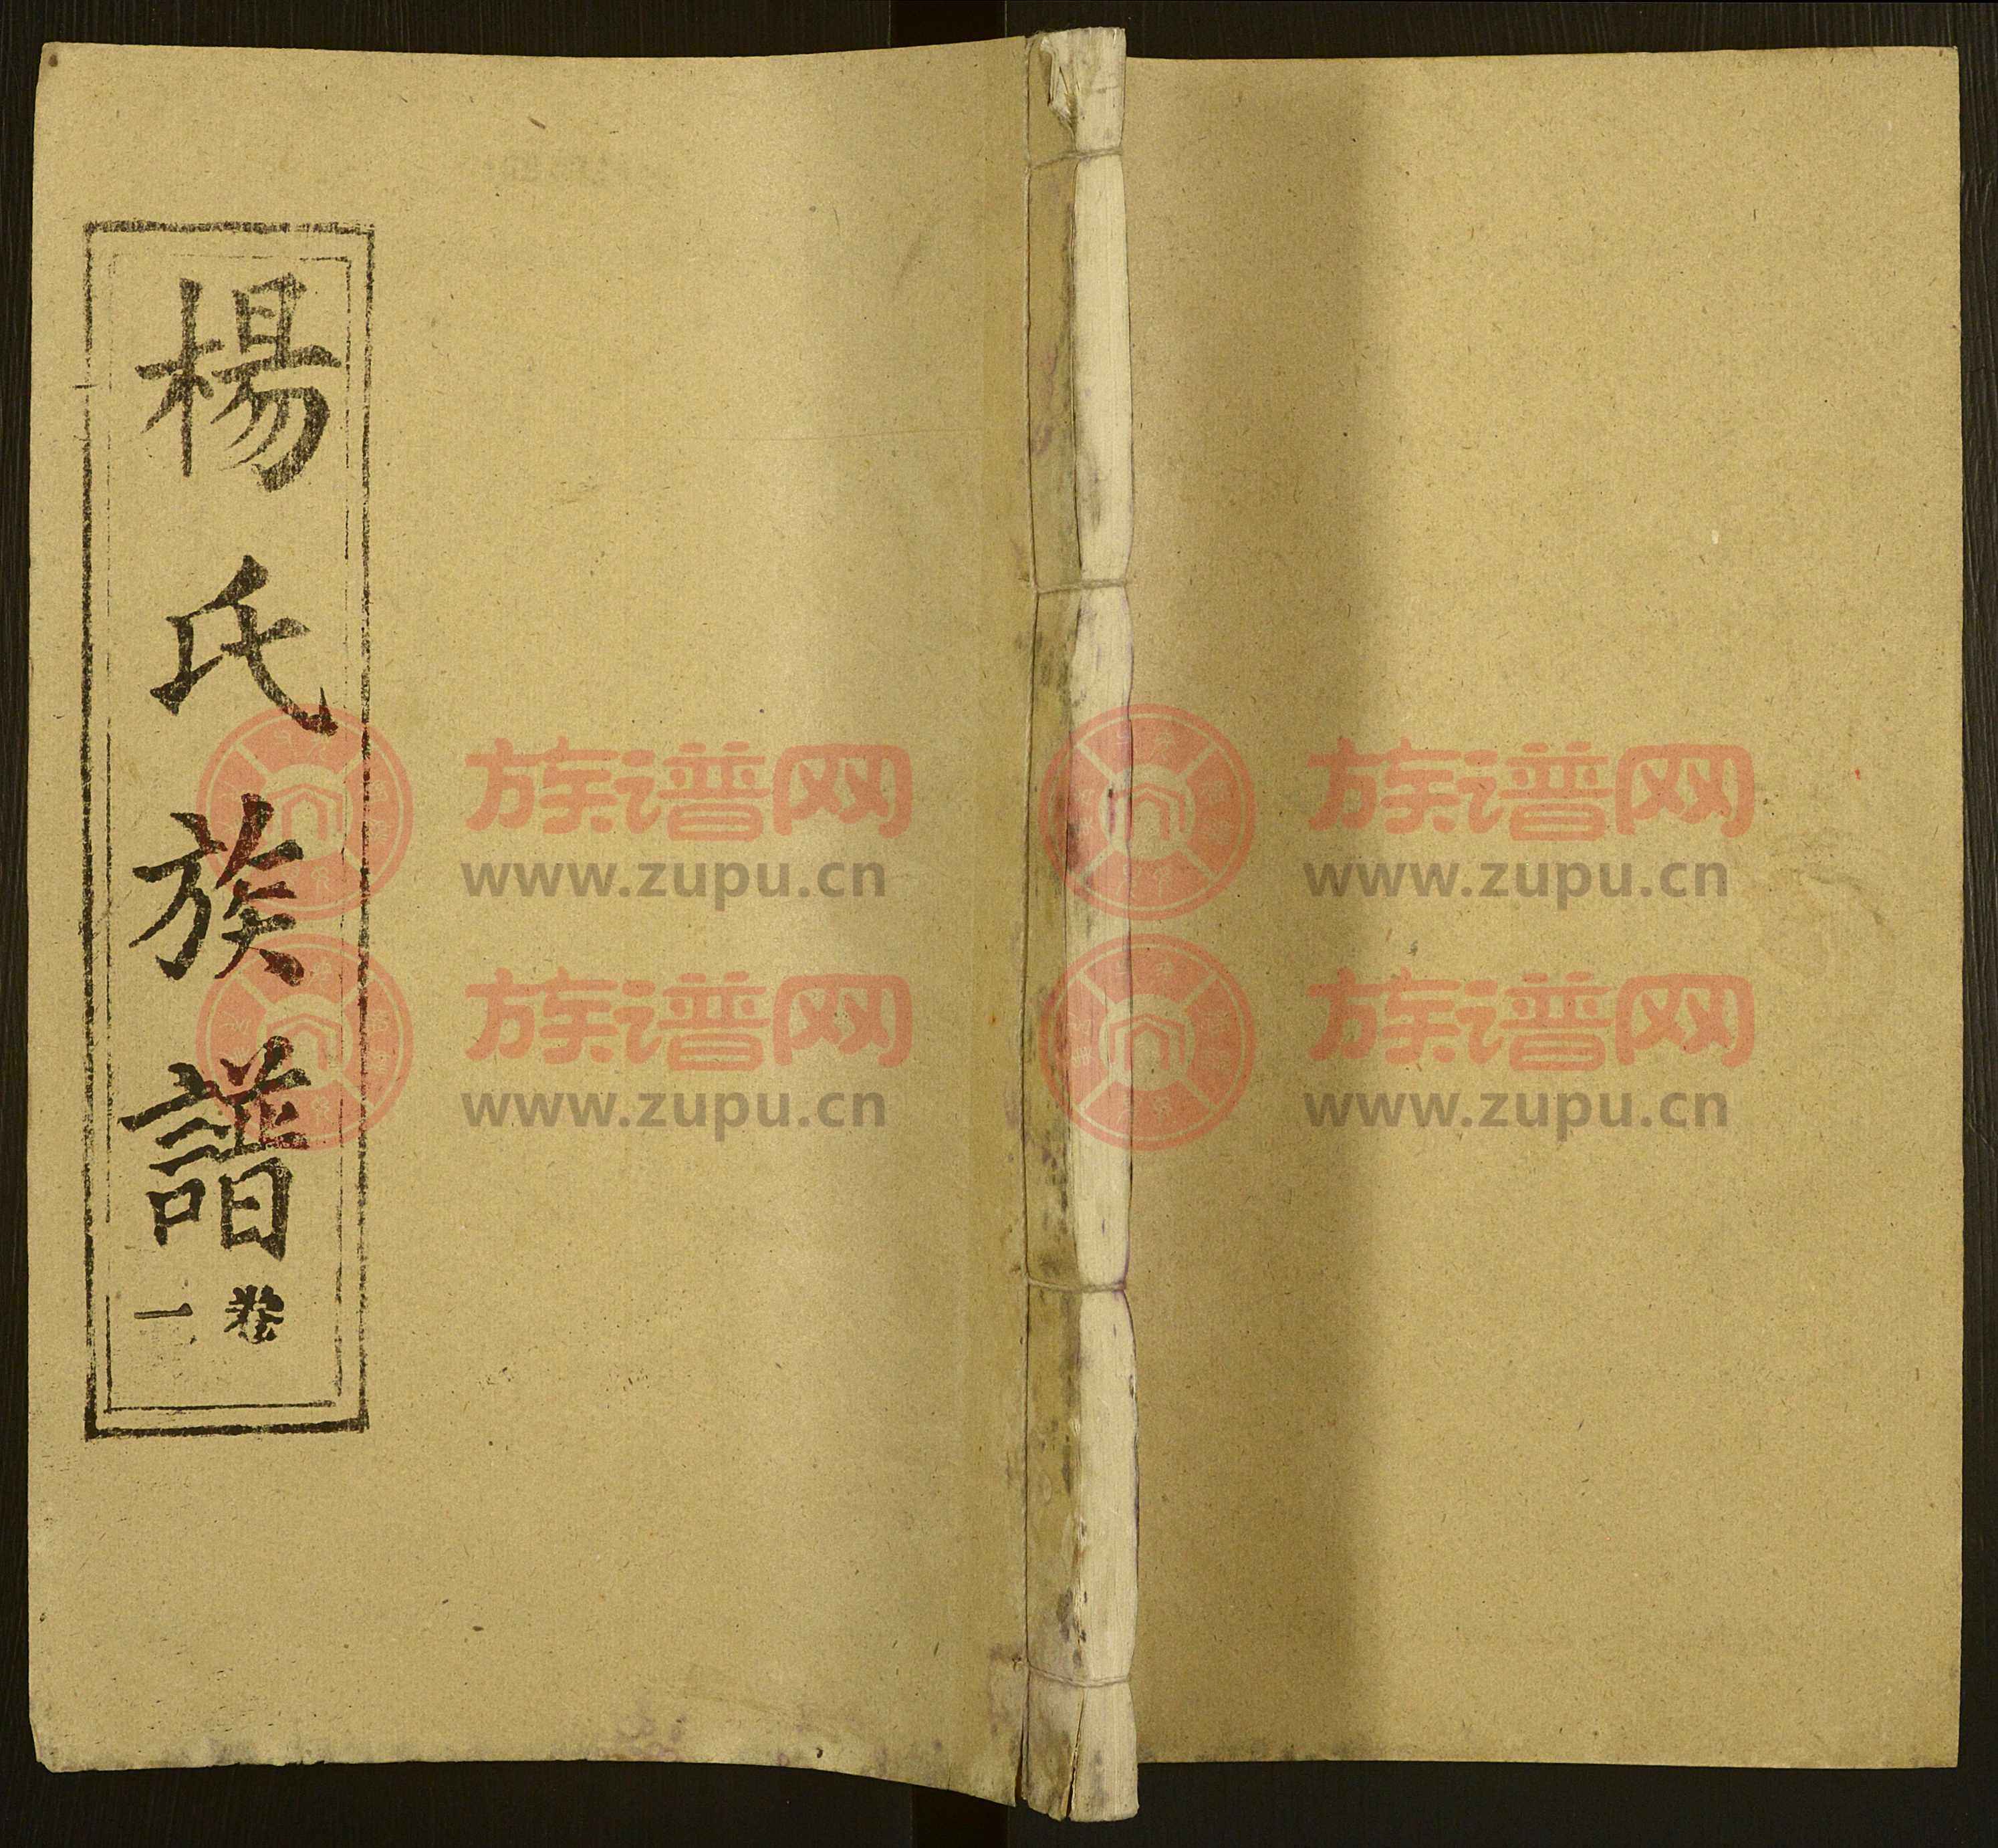 楊氏族譜
卷一
族谱网
www.zupu.cn
族谱网
www.zupu.cn
族谱网
www.zupu.cn
族谱网
www.zupu.cn